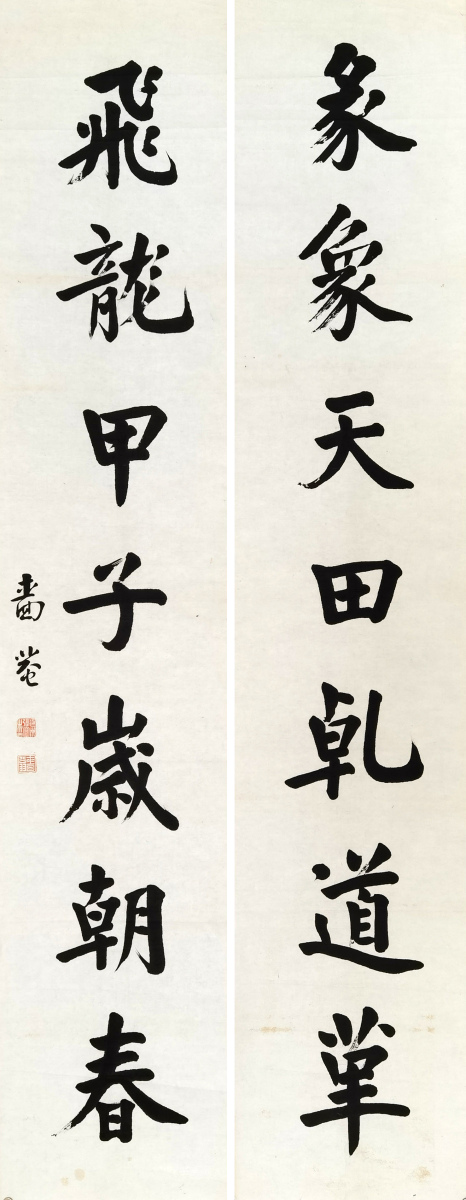 彖象天田乹道革
飛龍甲子歲朝春
嗇菴